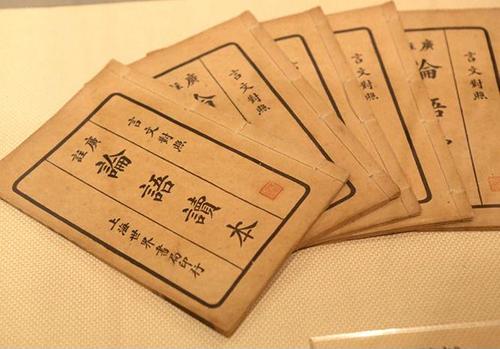 言文對照
廣註
論語讀本
上海世界書局印行
言文對照
廣
言文對照
言文對照
廣
論語